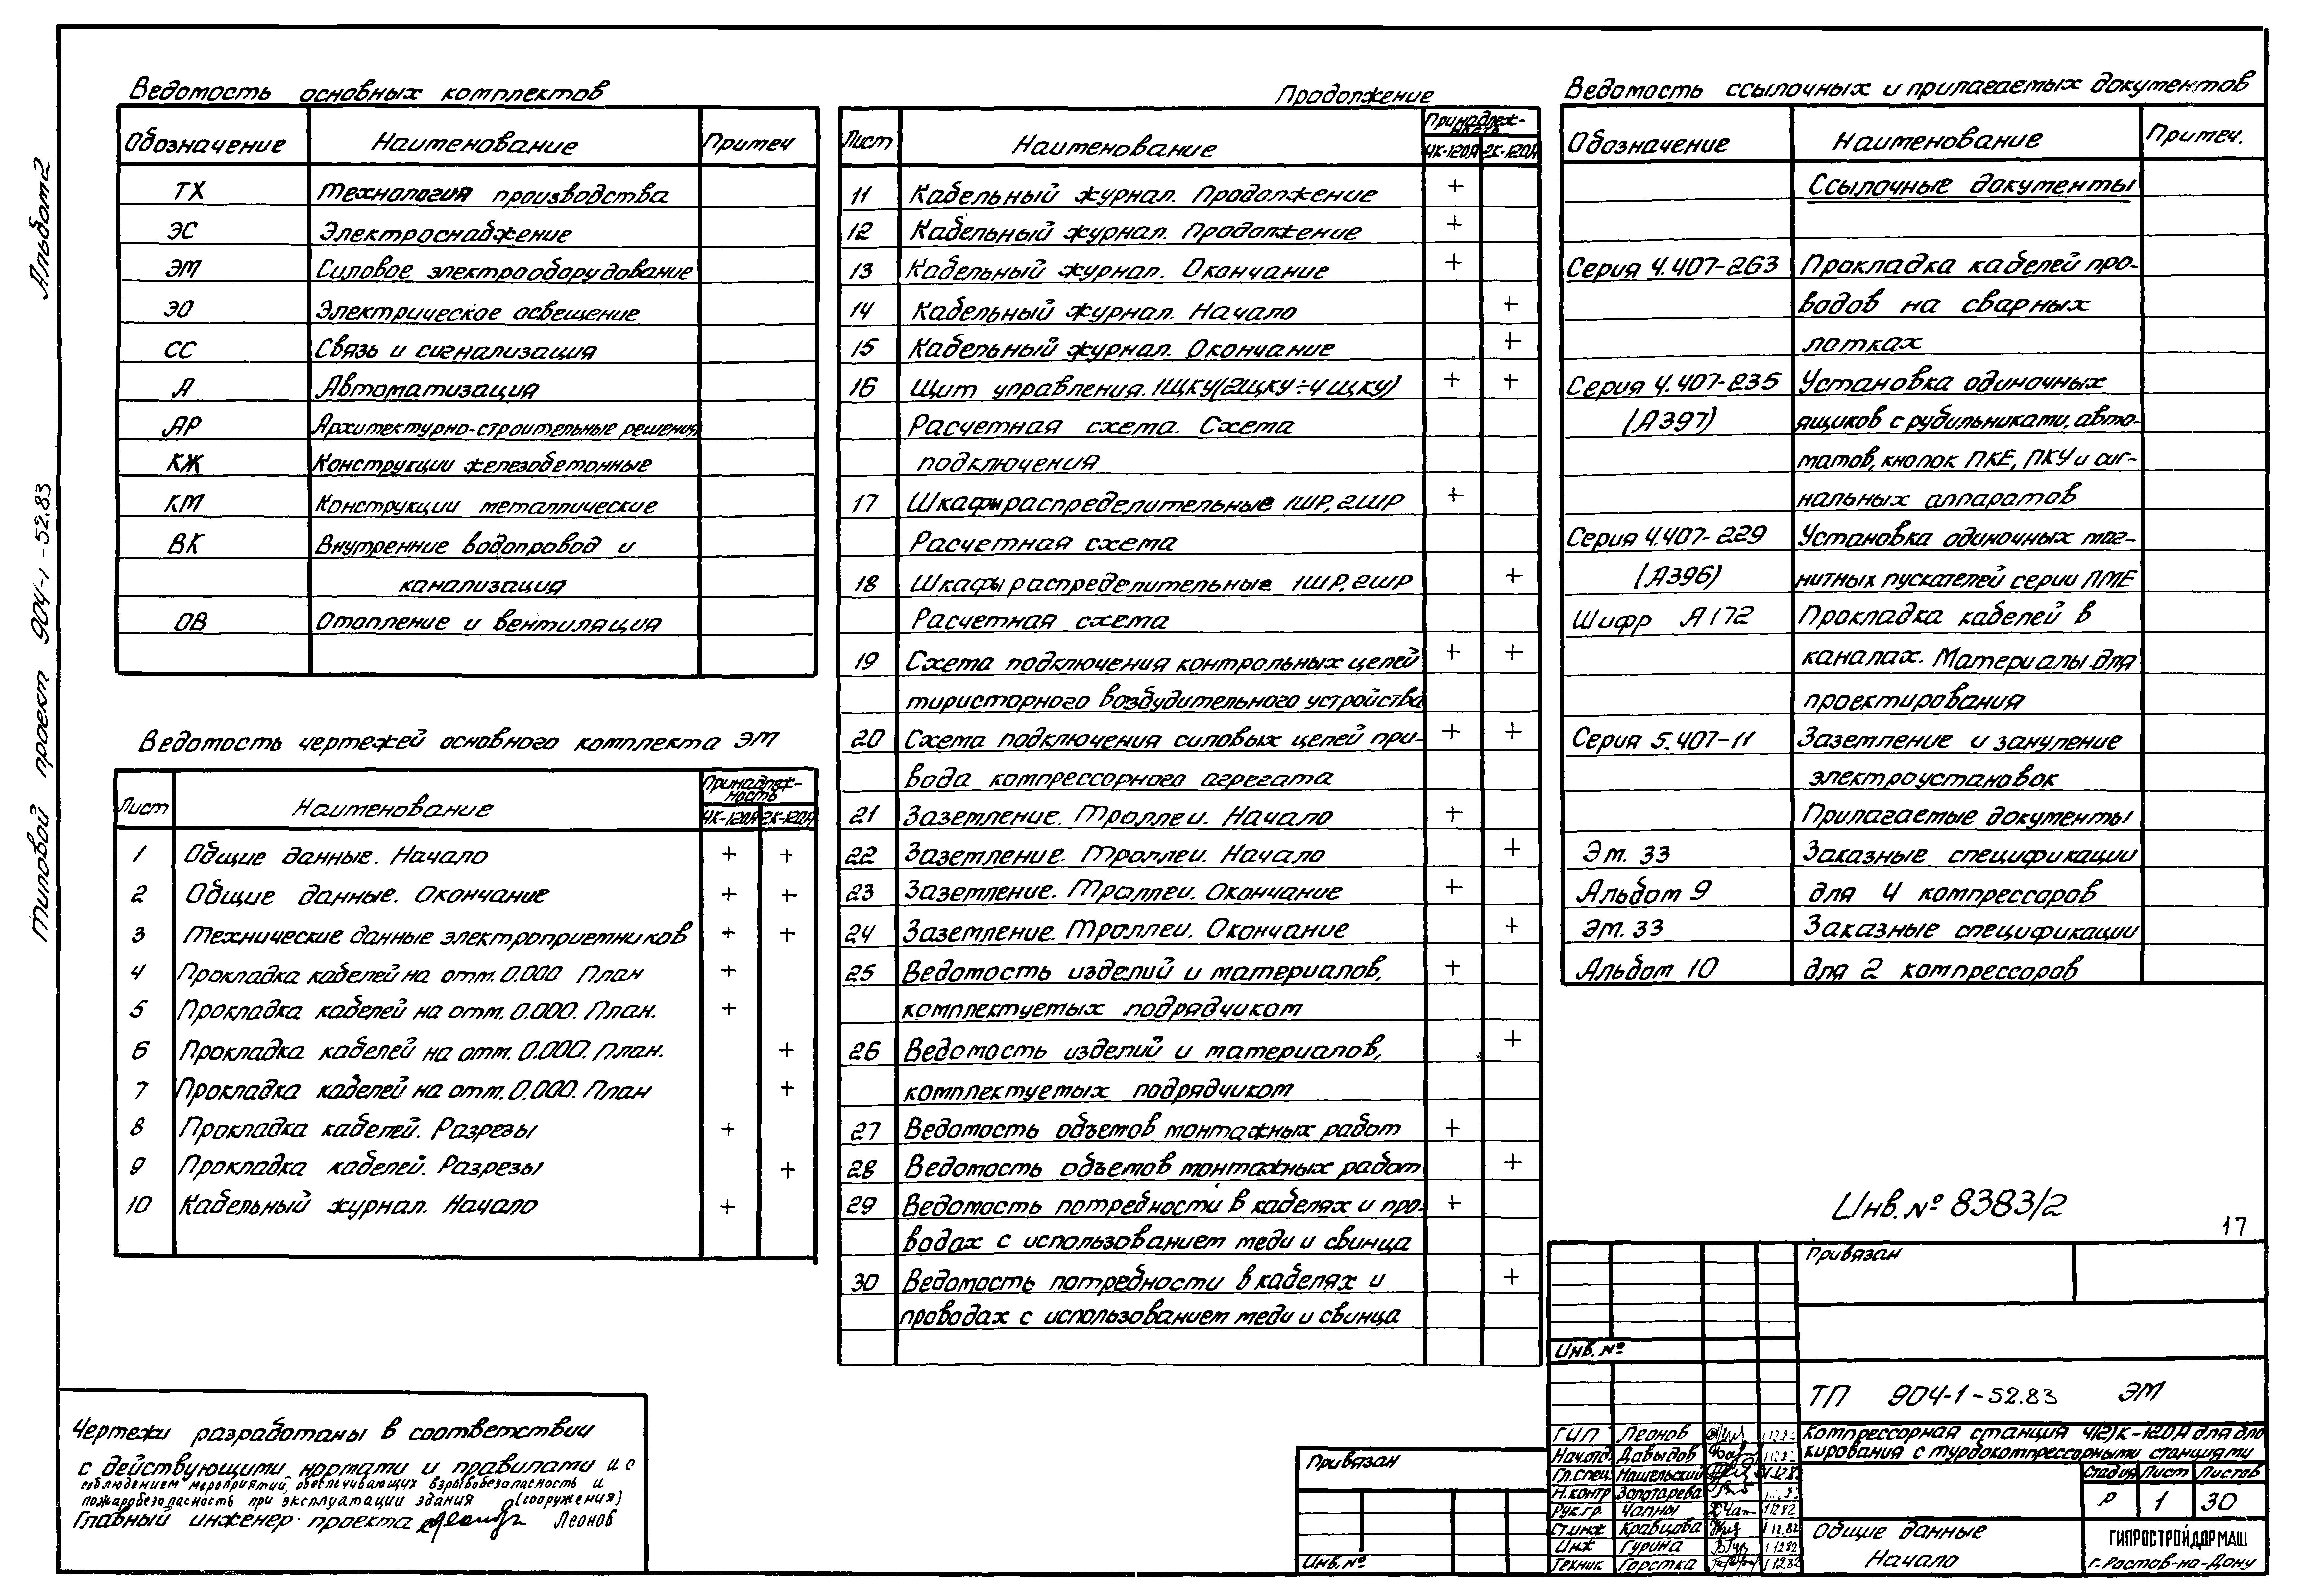 Альбом 2
Типовой проект 904-1-52.83
Ведомость основных комплектов
Обозначение Наименование Примеч
ТХ Технология производства
ЭС Электроснабжение
ЭМ Силовое электрооборудование
ЭО Электрическое освещение
СС Связь и сигнализация
А Автоматизация
АР Архитектурно-строительные решения
КЖ Конструкции железобетонные
КМ Конструкции металлические
ВК Внутренние водопровод и
канализация
ОВ Отопление и вентиляция
Ведомость чертежей основного комплекта ЭМ
Лист Наименование Принадлеж-
ность
4К-120А 2К-120А
1 Общие данные. Начало + +
2 Общие данные. Окончание + +
3 Технические данные электроприемников + +
4 Прокладка кабелей на отм. 0.000 План +
5 Прокладка кабелей на отм. 0.000. План. +
6 Прокладка кабелей на отм. 0.000. План. +
7 Прокладка кабелей на отм. 0.000. План +
8 Прокладка кабелей. Разрезы +
9 Прокладка кабелей. Разрезы +
10 Кабельный журнал. Начало +
Чертежи разработаны в соответствии
с действующими нормами и правилами и с
соблюдением мероприятий, обеспечивающих взрывобезопасность и
пожаробезопасность при эксплуатации здания (сооружения)
Главный инженер проекта Леонов
Продолжение
Лист Наименование Принадлеж-
ность
4К-120А 2К-120А
11 Кабельный журнал. Продолжение +
12 Кабельный журнал. Продолжение +
13 Кабельный журнал. Окончание +
14 Кабельный журнал. Начало +
15 Кабельный журнал. Окончание +
16 Щит управления. 1ЩКУ(2ЩКУ÷4ЩКУ) + +
Расчетная схема. Схема
подключения
17 Шкафы распределительные 1ШР, 2ШР +
Расчетная схема
18 Шкафы распределительные 1ШР, 2ШР +
Расчетная схема
19 Схема подключения контрольных цепей + +
тиристорного возбудительного устройства
20 Схема подключения силовых цепей при- + +
вода компрессорного агрегата
21 Заземление. Троллеи. Начало +
22 Заземление. Троллеи. Начало +
23 Заземление. Троллеи. Окончание +
24 Заземление. Троллеи. Окончание +
25 Ведомость изделий и материалов, +
комплектуемых подрядчиком
26 Ведомость изделий и материалов, +
комплектуемых подрядчиком
27 Ведомость объемов монтажных работ +
28 Ведомость объемов монтажных работ +
29 Ведомость потребности в кабелях и про- +
водах с использованием меди и свинца
30 Ведомость потребности в кабелях и +
проводах с использованием меди и свинца
Привязан
Инв. №
Ведомость ссылочных и прилагаемых документов
Обозначение Наименование Примеч.
Ссылочные документы
Серия 4.407-263 Прокладка кабелей про-
водов на сварных
лотках
Серия 4.407-235 Установка одиночных
(А397) ящиков с рубильниками, авто-
матов, кнопок ПКЕ, ПКУ и сиг-
нальных аппаратов
Серия 4.407-229 Установка одиночных маг-
(А396) нитных пускателей серии ПМЕ
Шифр А172 Прокладка кабелей в
каналах. Материалы для
проектирования
Серия 5.407-11 Заземление и зануление
электроустановок
Прилагаемые документы
Эм. 33 Заказные спецификации
Альбом 9 для 4 компрессоров
Эм. 33 Заказные спецификации
Альбом 10 для 2 компрессоров
Инв. № 8383/2
17
Привязан
Инв. №
ТП 904-1-52.83 ЭМ
Компрессорная станция 4(2)К-120А для бло
кирования с турбокомпрессорными станциями
Стадия Лист Листов
Р 1 30
Общие данные
Начало
ГИПРОСТРОЙДОРМАШ
г. Ростов-на-Дону
ГИП Леонов
Нач.отд. Давыдов
Гл.спец. Нашельский
Н.контр Золотарева
Рук.гр. Чапны 1 12 82
Ст.инж Кравцова 1 12.82
Инж Гурина 1 12 82
Техник Горстка 1 12 82